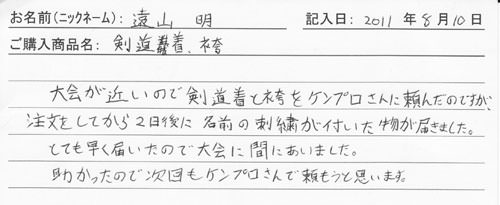 お名前(ニックネーム): 遠山 明 記入日: 2011 年 8 月 10 日
ご購入商品名: 剣道着、袴
大会が近いので剣道着と袴をケンプロさんに頼んだのですが、
注文をしてから2日後に名前の刺繍が付いた物が届きました。
とても早く届いたので大会に間にあいました。
助かったので次回もケンプロさんで頼もうと思います。